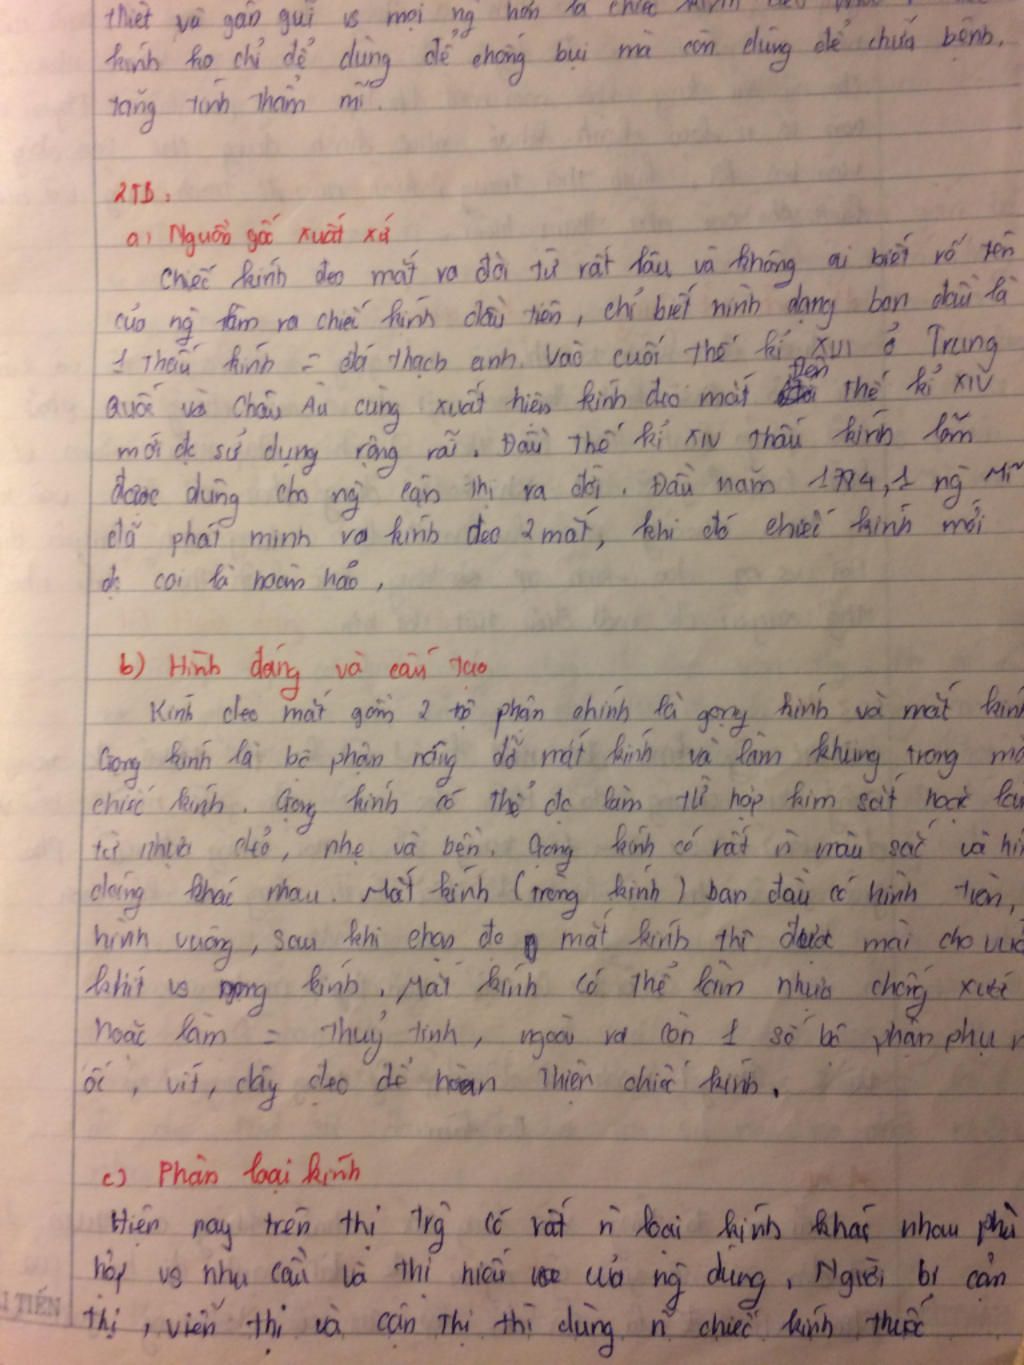 thiết và gần gũi vs mọi ng hơn là chiếc kính
kính ko chỉ để dùng để chống bụi mà còn dùng để chữa bệnh,
tăng tính thẩm mĩ.
2TB:
a) Nguồn gốc xuất xứ
Chiếc kính đeo mắt ra đời từ rất lâu và không ai biết rõ tên
của ng làm ra chiếc kính đầu tiên, chỉ biết hình dạng ban đầu là
1 thấu kính = đá thạch anh. Vào cuối thế kỉ XVI ở Trung
Quốc và Châu Âu cũng xuất hiện kính đeo mắt đến thế kỉ XIV
mới đc sử dụng rộng rãi. Đầu thế kỉ XIV thấu kính lõm
được dùng cho ng cận thị ra đời. Đầu năm 1784, 1 ng Mĩ
đã phát minh ra kính đeo 2 mắt, khi đó chiếc kính mới
đc coi là hoàn hảo,
b) Hình dáng và cấu tạo
Kính đeo mắt gồm 2 bộ phận chính là gọng kính và mắt kính
Gọng kính là bộ phận nâng đỡ mắt kính và làm khung trong
chiếc kính. Gọng kính có thể đc làm từ hợp kim sắt hoặc
từ nhựa dẻo, nhẹ và bền. Gọng kính có rất n màu sắc và
dáng khác nhau. Mắt kính (tròng kính) ban đầu có hình tròn,
hình vuông, sau khi chọn đc mắt kính thì được mài cho
khít vs gọng kính. Mắt kính có thể làm nhựa chống xước
hoặc làm = thuỷ tinh, ngoài ra còn 1 số bộ phận phụ
ốc, vít, dây đeo để hoàn thiện chiếc kính.
c) Phân loại kính
Hiện nay trên thị trg có rất n loại kính khác nhau phù
hợp vs nhu cầu và thị hiếu của ng dùng. Người bị cận
thị, viễn thị và cận thị thì dùng n~ chiếc kính thuốc
TIẾN